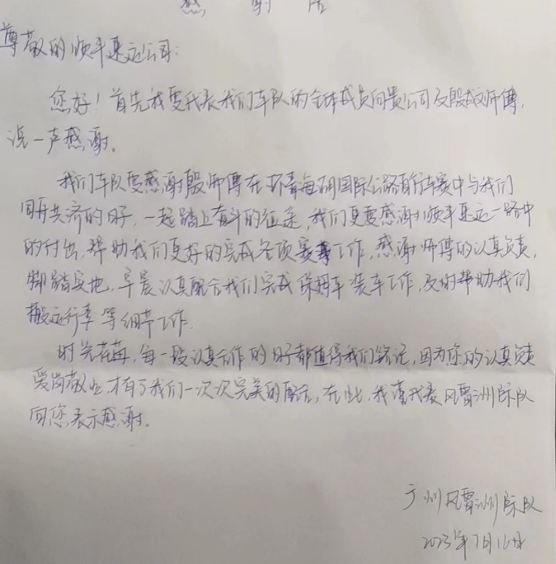 感谢信
尊敬的顺丰速运公司:
您好!首先我要代表我们车队的全体成员向贵公司及殷成师傅,
说一声感谢。
我们车队要感谢殷师傅在环青海湖国际公路自行车赛中与我们
同舟共济的日子,一起踏上奋斗的征途,我们更要感谢顺丰速运一路中
的付出,帮助我们更好的完成各项赛事工作,感谢师傅的认真负责,
脚踏实地,早晨认真配合我们完成保障车装车工作,及时帮助我们
搬运行李等细节工作.
时光荏苒,每一段认真工作的日子都值得我们铭记,因为您的认真负责
爱岗敬业,才有了我们一次次完美的配合,在此,我谨代表风雷洲际队
向您表示感谢。
广州风雷洲际队
2023年7月16日